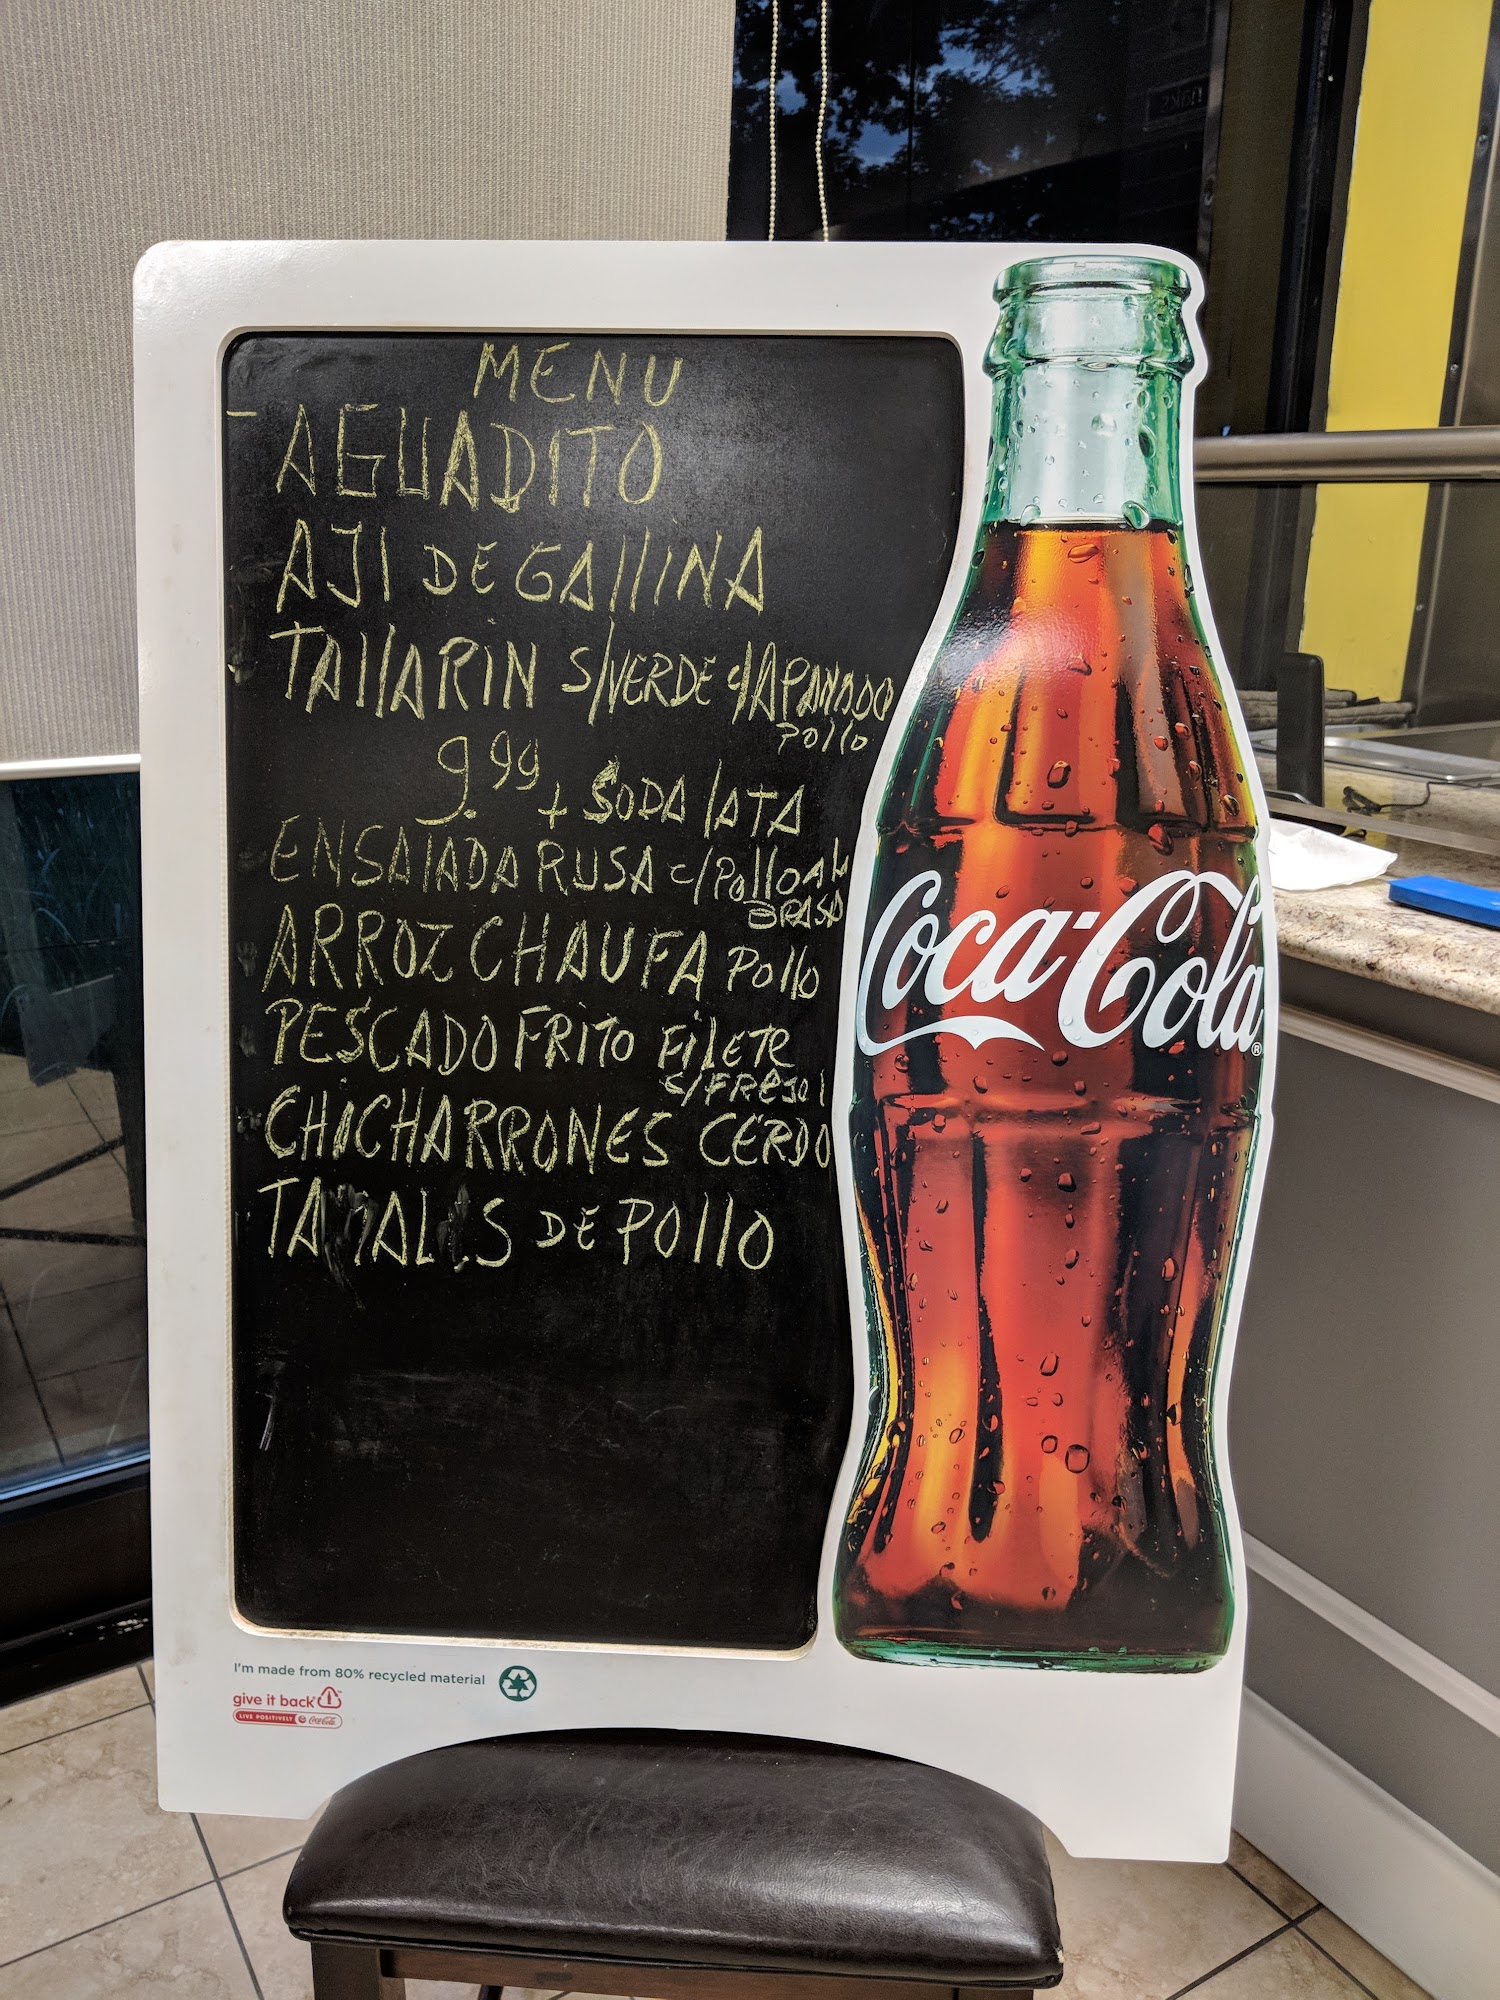 MENU
- AGUADITO
AJI DE GAllINA
TAllARIN S/VERDE c/APANADO
Pollo
9.99 + SODA lATA
ENSAlADA RUSA c/Pollo A lA
BRASA
ARROZ CHAUFA Pollo
PESCADO FRITO FiLETE
C/FREJOl
CHiCHARRONES CERDO
TAMALES DE POllO
Coca-Cola®
I'm made from 80% recycled material
give it back
LIVE POSITIVELY Coca-Cola